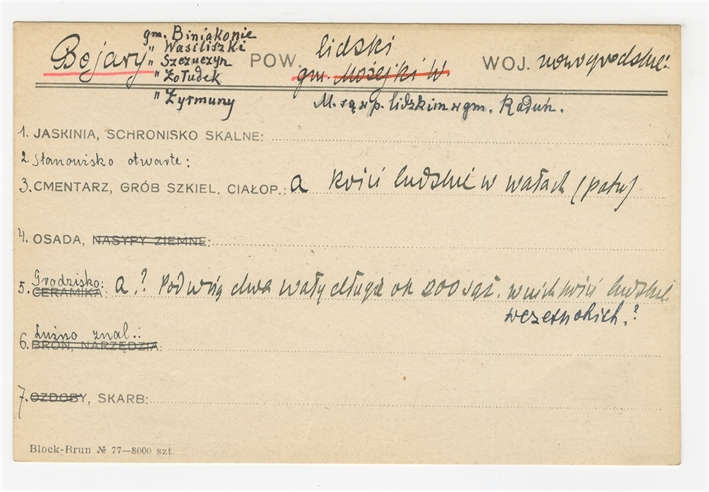 Bojary gm. Biniakonie
" Wasiliszki
" Szczuczyn
" Żołudek
" Żyrmuny
POW. lidski
gm. Możejki W
WOJ. nowogrodzkie.
M. są w p. lidzkim w gm. Raduń.
1. JASKINIA, SCHRONISKO SKALNE:
2. Stanowisko otwarte:
3. CMENTARZ, GRÓB SZKIEL. CIAŁOP.: a kości ludzkie w wałach
4. OSADA, NASYPY ZIEMNE:
Grodzisko:
5. CERAMIKA: a? Pod wsią dwa wały długie ok 200 sąż. w nich kości ludzkie.
Luźno znal.:
6. BROŃ, NARZĘDZIA:
7. OZDOBY, SKARB:
Block-Brun № 77—8000 szt.